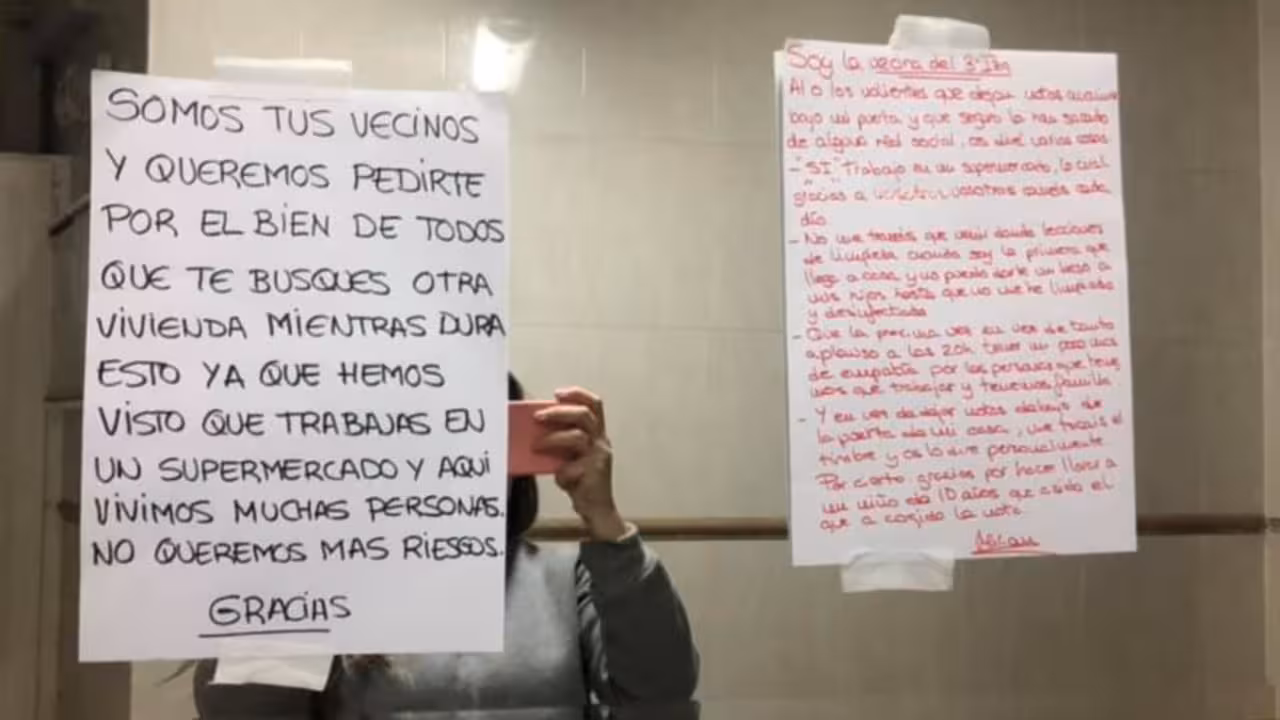 SOMOS TUS VECINOS
Y QUEREMOS PEDIRTE
POR EL BIEN DE TODOS
QUE TE BUSQUES OTRA
VIVIENDA MIENTRAS DURA
ESTO YA QUE HEMOS
VISTO QUE TRABAJAS EN
UN SUPERMERCADO Y AQUI
VIVIMOS MUCHAS PERSONAS.
NO QUEREMOS MAS RIESGOS.
GRACIAS
Soy la vecina del 3º
Al o los valientes que dejan notas
bajo mi puerta y que seguro lo has sacado
de alguna red social, os diré varias cosas
- "SI" Trabajo en un supermercado, lo cual
gracias a vosotros coméis cada
día
- No me tenéis que venir dando lecciones
de limpieza cuando soy la primera que
llego a casa y no puedo darle un beso a
mis hijos hasta que no me he limpiado
y desinfectado
- Que la próxima vez en vez de tanto
aplauso a las 20h tener un poco mas
de empatía por las personas que tene
mos que trabajar y tenemos familia
- Y en vez de dejar notas debajo de
la puerta de mi casa, me tocais el
timbre y os lo dire personalmente
Por cierto gracias por hacer llorar a
un niño de 10 años que a sido el
que a cogido la nota